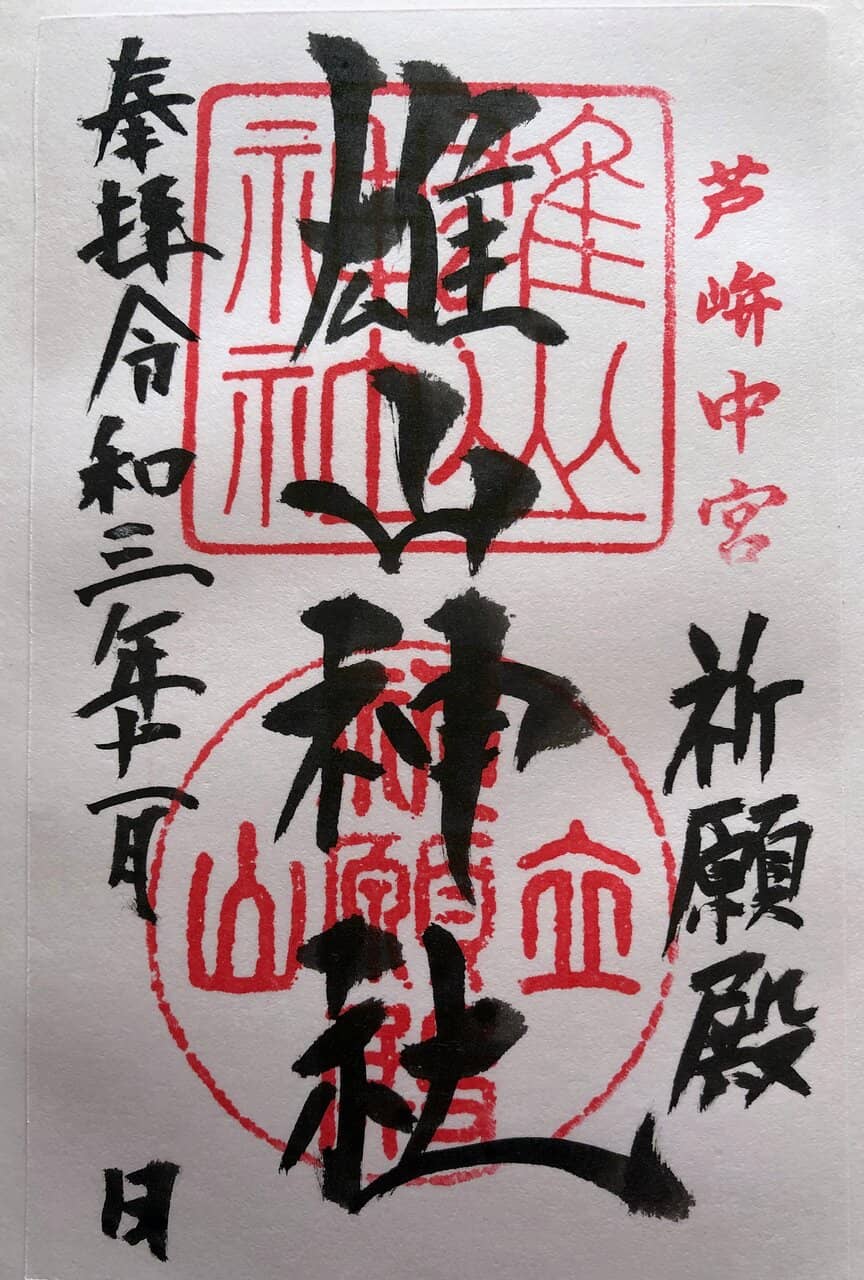 芦峅中宮
祈願殿
雄山神社
雄山
神社
立山
祈願殿
奉拝令和三年十一月 日